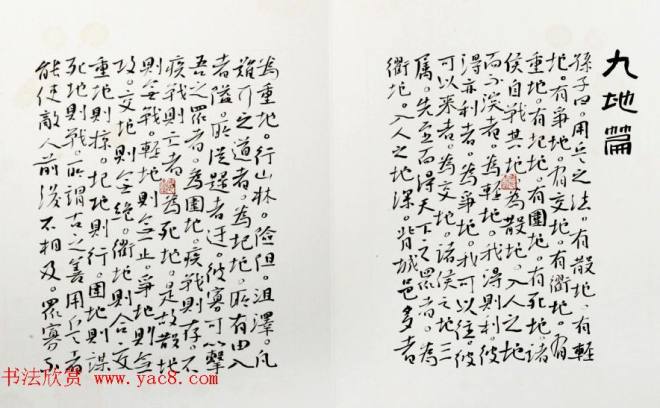 九地篇
孫子曰。用兵之法。有散地。有輕
地。有爭地。有交地。有衢地。有
重地。有圮地。有圍地。有死地。諸
侯自戰其地。為散地。入人之地
而不深者。為輕地。我得則利。彼
得亦利者。為爭地。我可以往。彼
可以來者。為交地。諸侯之地三
屬。先至而得天下之眾者。為
衢地。入人之地深。背城邑多者
為重地。行山林。險阻。沮澤。凡
難行之道者。為圮地。所有由入
者隘。所從歸者迂。彼寡可以擊
吾之眾者。為圍地。疾戰則存。不
疾戰則亡者。為死地。是故散地
則無戰。輕地則無止。爭地則無
攻。交地則無絕。衢地則合交。
重地則掠。圮地則行。圍地則謀
死地則戰。所謂古之善用兵者
能使敵人前後不相及。眾寡不
书法欣赏 www.yac8.com